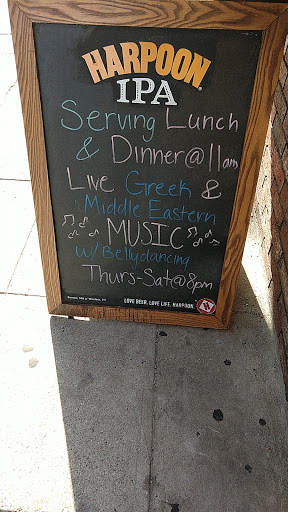 HARPOON
IPA
Serving Lunch
& Dinner@11am
Live Greek &
Middle Eastern
MUSIC
w/Bellydancing
Thurs-Sat@8pm
LOVE BEER. LOVE LIFE. HARPOON.